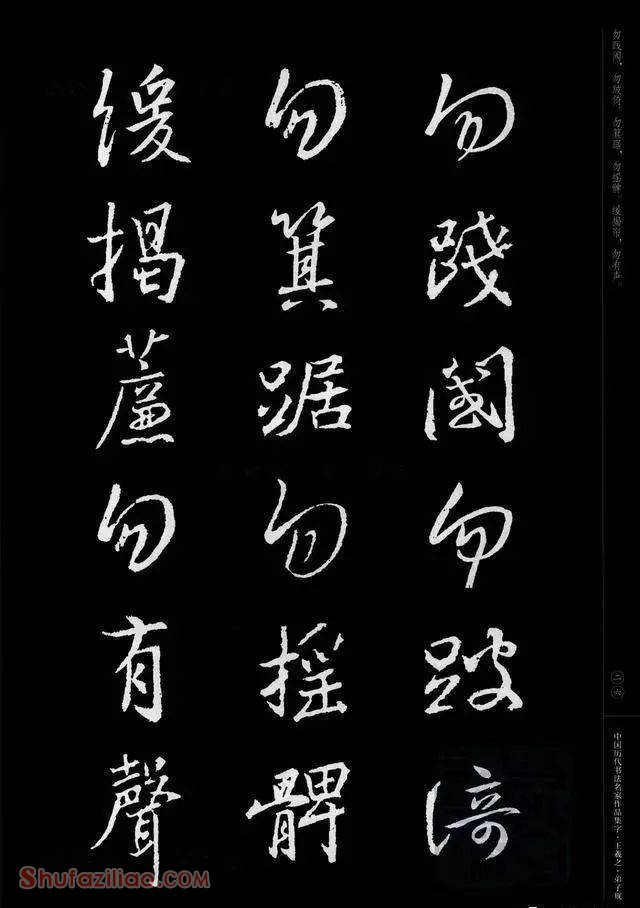 勿踐閾勿跛倚
勿箕踞勿搖髀
緩揭簾勿有聲
勿践阈，勿跛倚。勿箕踞，勿摇髀。缓揭帘，勿有声。
二六
中国历代书法名家作品集字·王羲之·弟子规
Shufaziliao.com